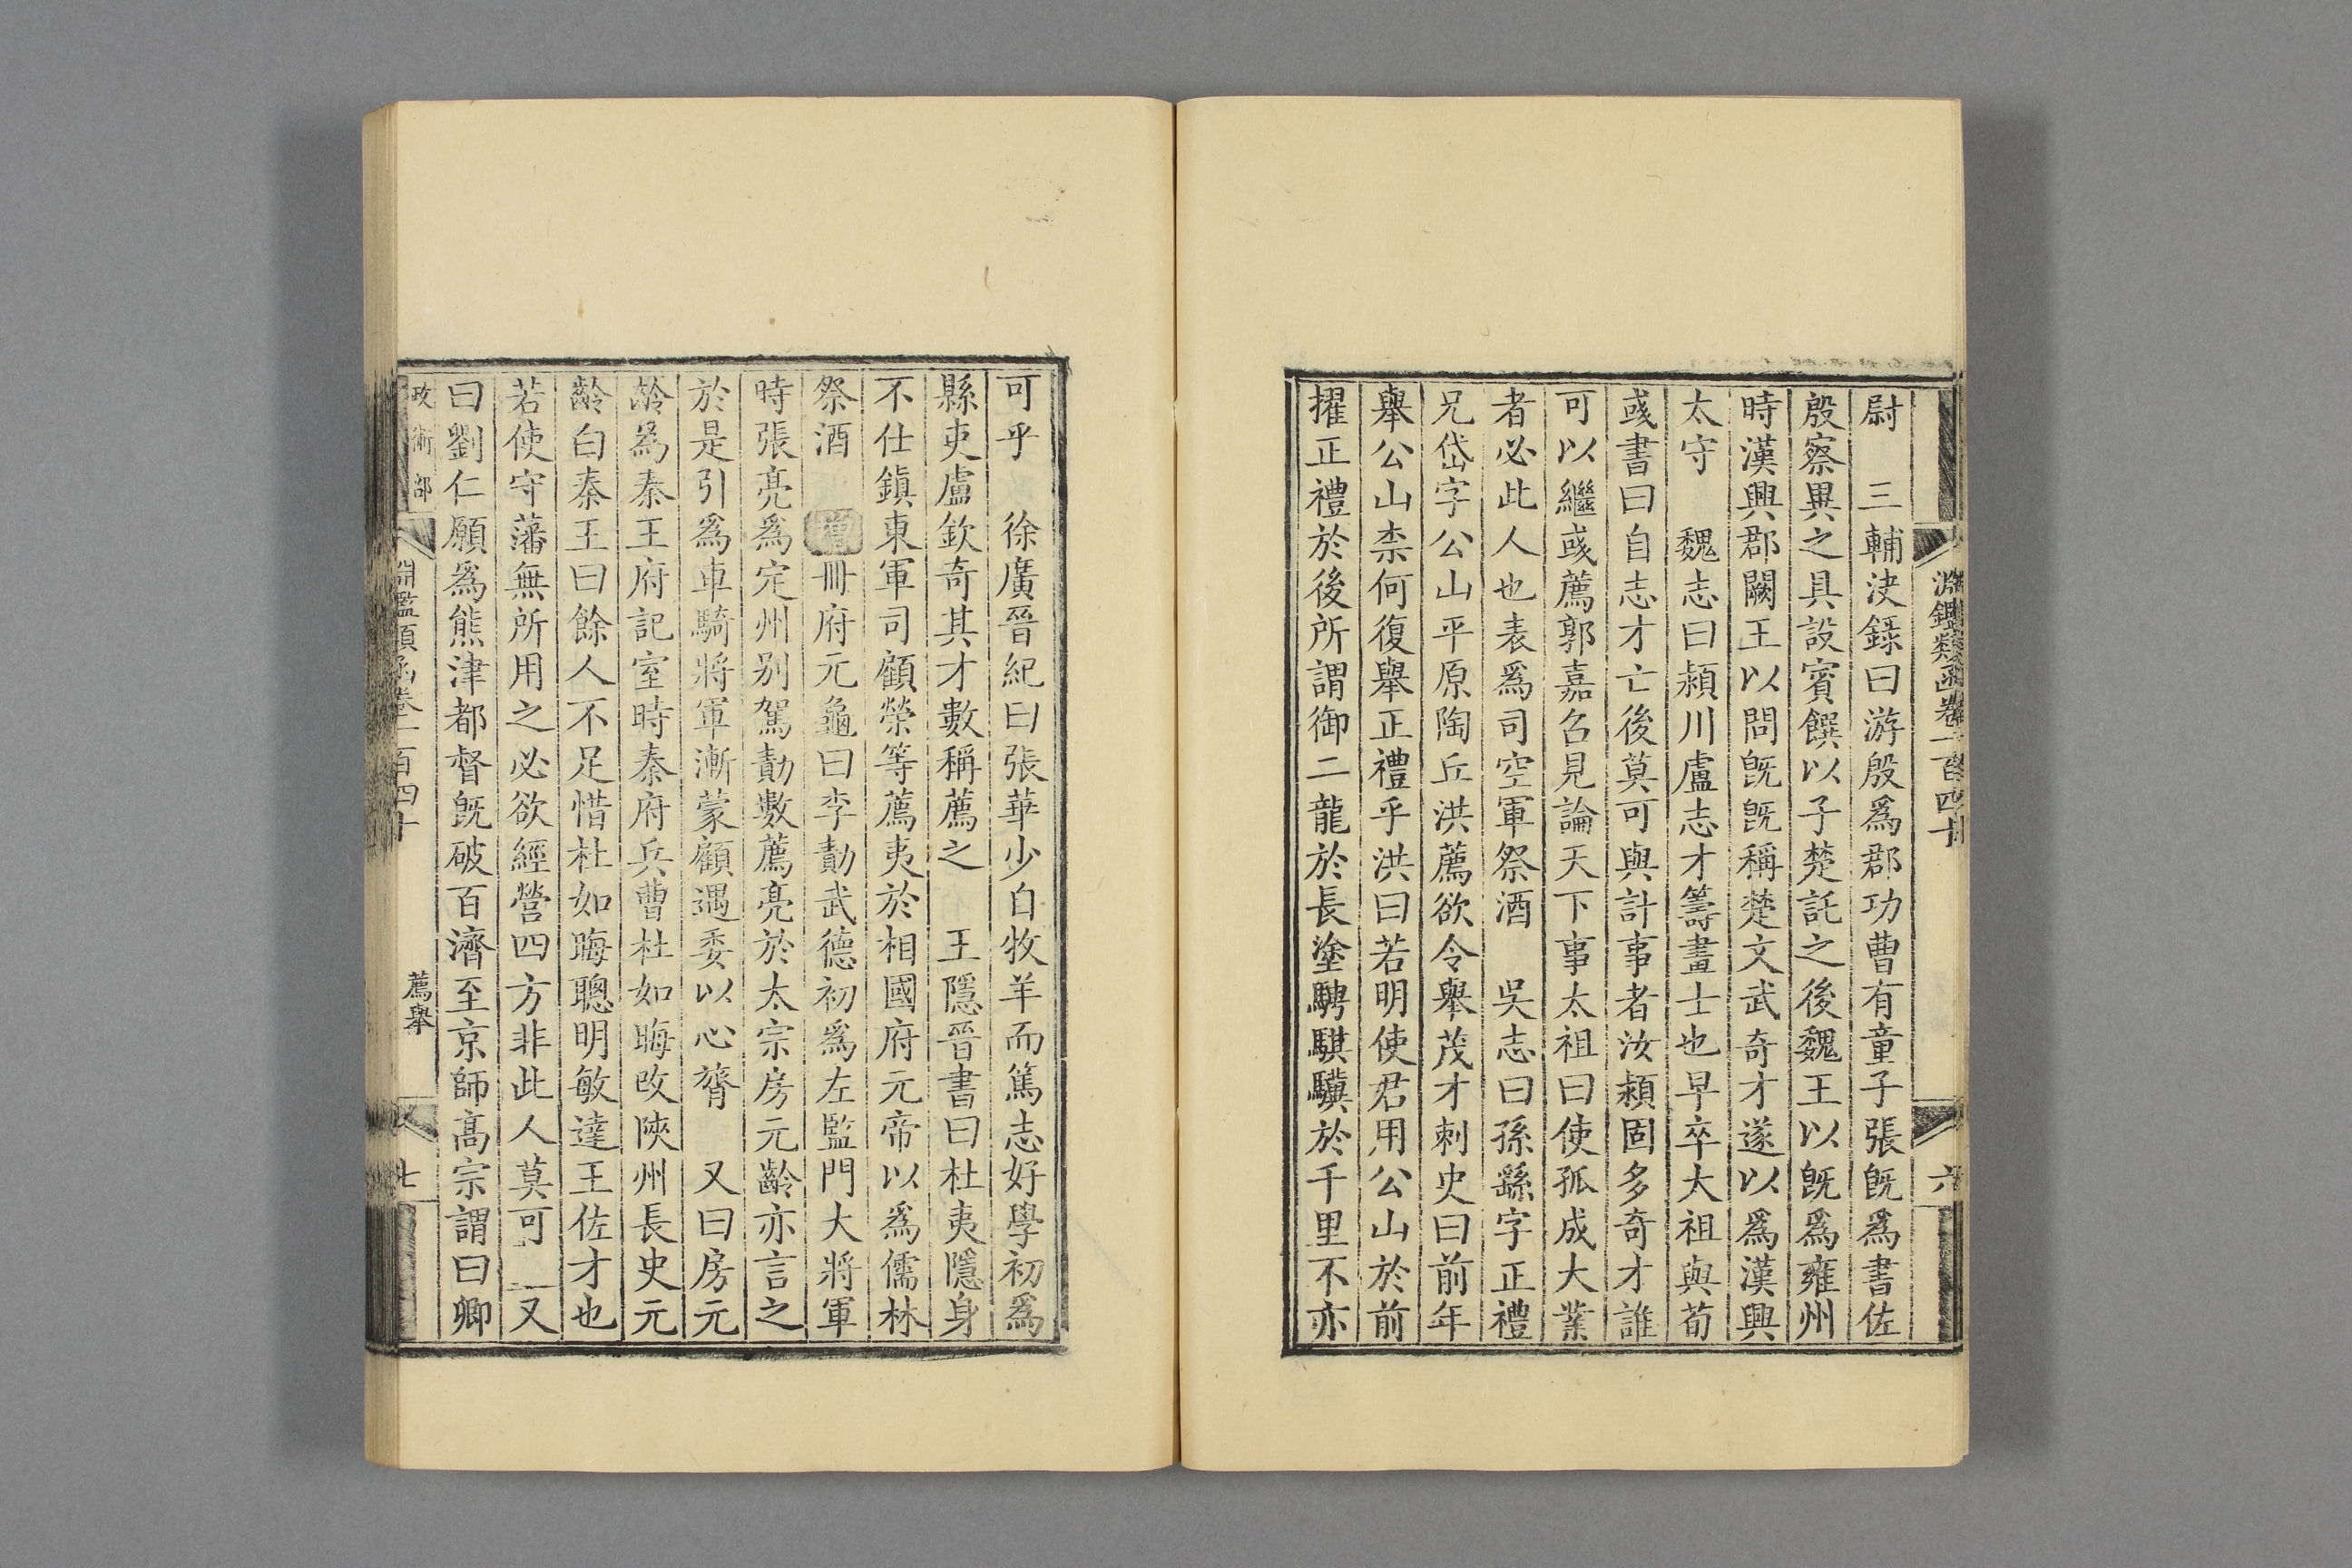 淵鑑類函卷一百四十
六
尉　三輔決錄曰游殷爲郡功曹有童子張旣爲書佐
殷察異之具設賓饌以子楚託之後魏王以旣爲雍州
時漢興郡闕王以問旣旣稱楚文武奇才遂以爲漢興
太守　魏志曰潁川盧志才籌畫士也早卒大祖與荀
彧書曰自志才亡後莫可與計事者汝潁固多奇才誰
可以繼彧薦郭嘉召見論天下事太祖曰使孤成大業
者必此人也表爲司空軍祭酒　吳志曰孫繇字正禮
兄岱字公山平原陶丘洪薦欲令舉茂才刺史曰前年
舉公山柰何復舉正禮乎洪曰若明使君用公山於前
擢正禮於後所謂御二龍於長塗騁騏驥於千里不亦
可乎　徐廣晉紀曰張華少自牧羊而篤志好學初爲
縣吏盧欽奇其才數稱薦之　王隱晉書曰杜夷隱身
不仕鎮東軍司顧榮等薦夷於相國府元帝以爲儒林
祭酒　增冊府元龜曰李勣武德初爲左監門大將軍
時張亮爲定州别駕勣數薦亮於太宗房元齡亦言之
於是引爲車騎將軍漸蒙顧遇委以心膂　又曰房元
齡爲秦王府記室時秦府兵曹杜如晦改陝州長史元
齡白秦王曰餘人不足惜杜如晦聰明敏達王佐才也
若使守藩無所用之必欲經營四方非此人莫可　又
曰劉仁願爲熊津都督旣破百濟至京師高宗謂曰卿
政術部
淵鑑類函卷一百四十
薦舉
七